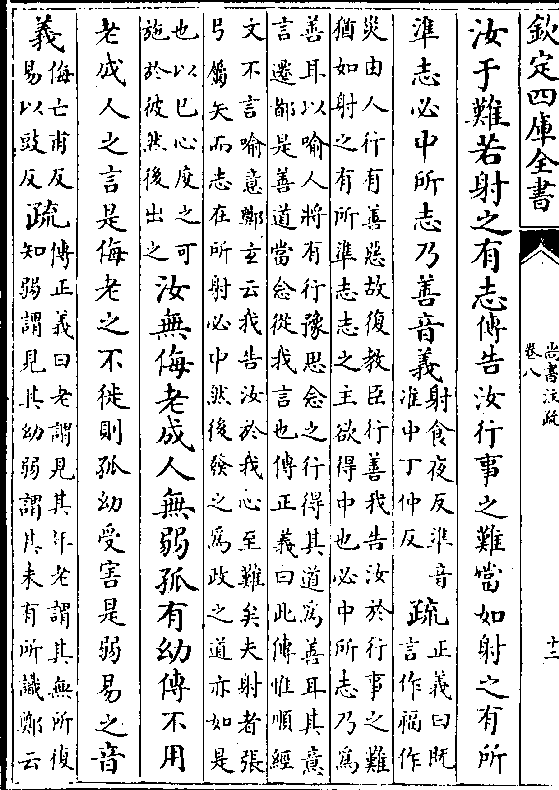 欽定四庫全書
尚書注疏
卷八
十二
汝于難若射之有志傳告汝行事之難當如射之有所
準志必中所志乃善音義
射食夜反準音
准中丁仲反
疏
正義曰既
言作福作
災由人行有善惡故復教臣行善我告汝於行事之難
猶如射之有所準志志之主欲得中也必中所志乃為
善耳以喻人將有行豫思念之行得其道為善耳其意
言遷都是善道當念從我言也傳正義曰此傳惟順經
文不言喻意鄭玄云我告汝於我心至難矣夫射者張
弓屬矢而志在所射必中然後發之為政之道亦如是
也以己心度之可
施於彼然後出之
汝無侮老成人無弱孤有幼傳不用
老成人之言是侮老之不徙則孤幼受害是弱易之音
義
侮亡甫反
易以豉反
疏
傳正義曰老謂見其年老謂其無所復
知弱謂見其幼弱謂其未有所識鄭云